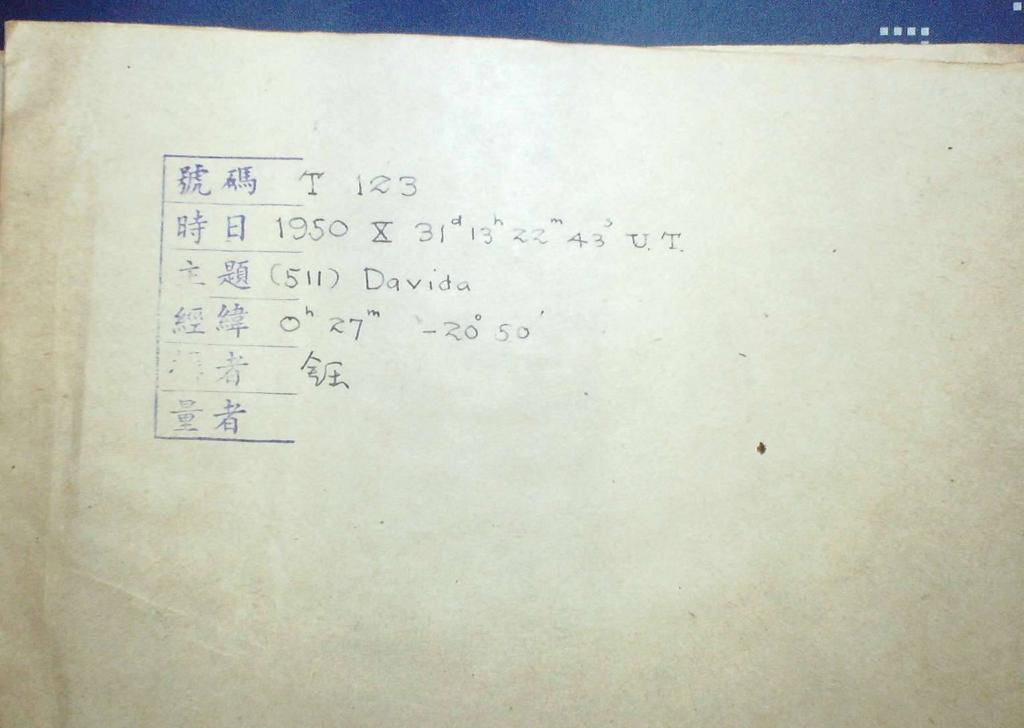 號碼 T 123
時日 1950 X 31ᵈ 13ʰ 22ᵐ 43ˢ U.T.
主題 (511) Davida
經緯 0ʰ 27ᵐ -20° 50′
者 鈺
量者